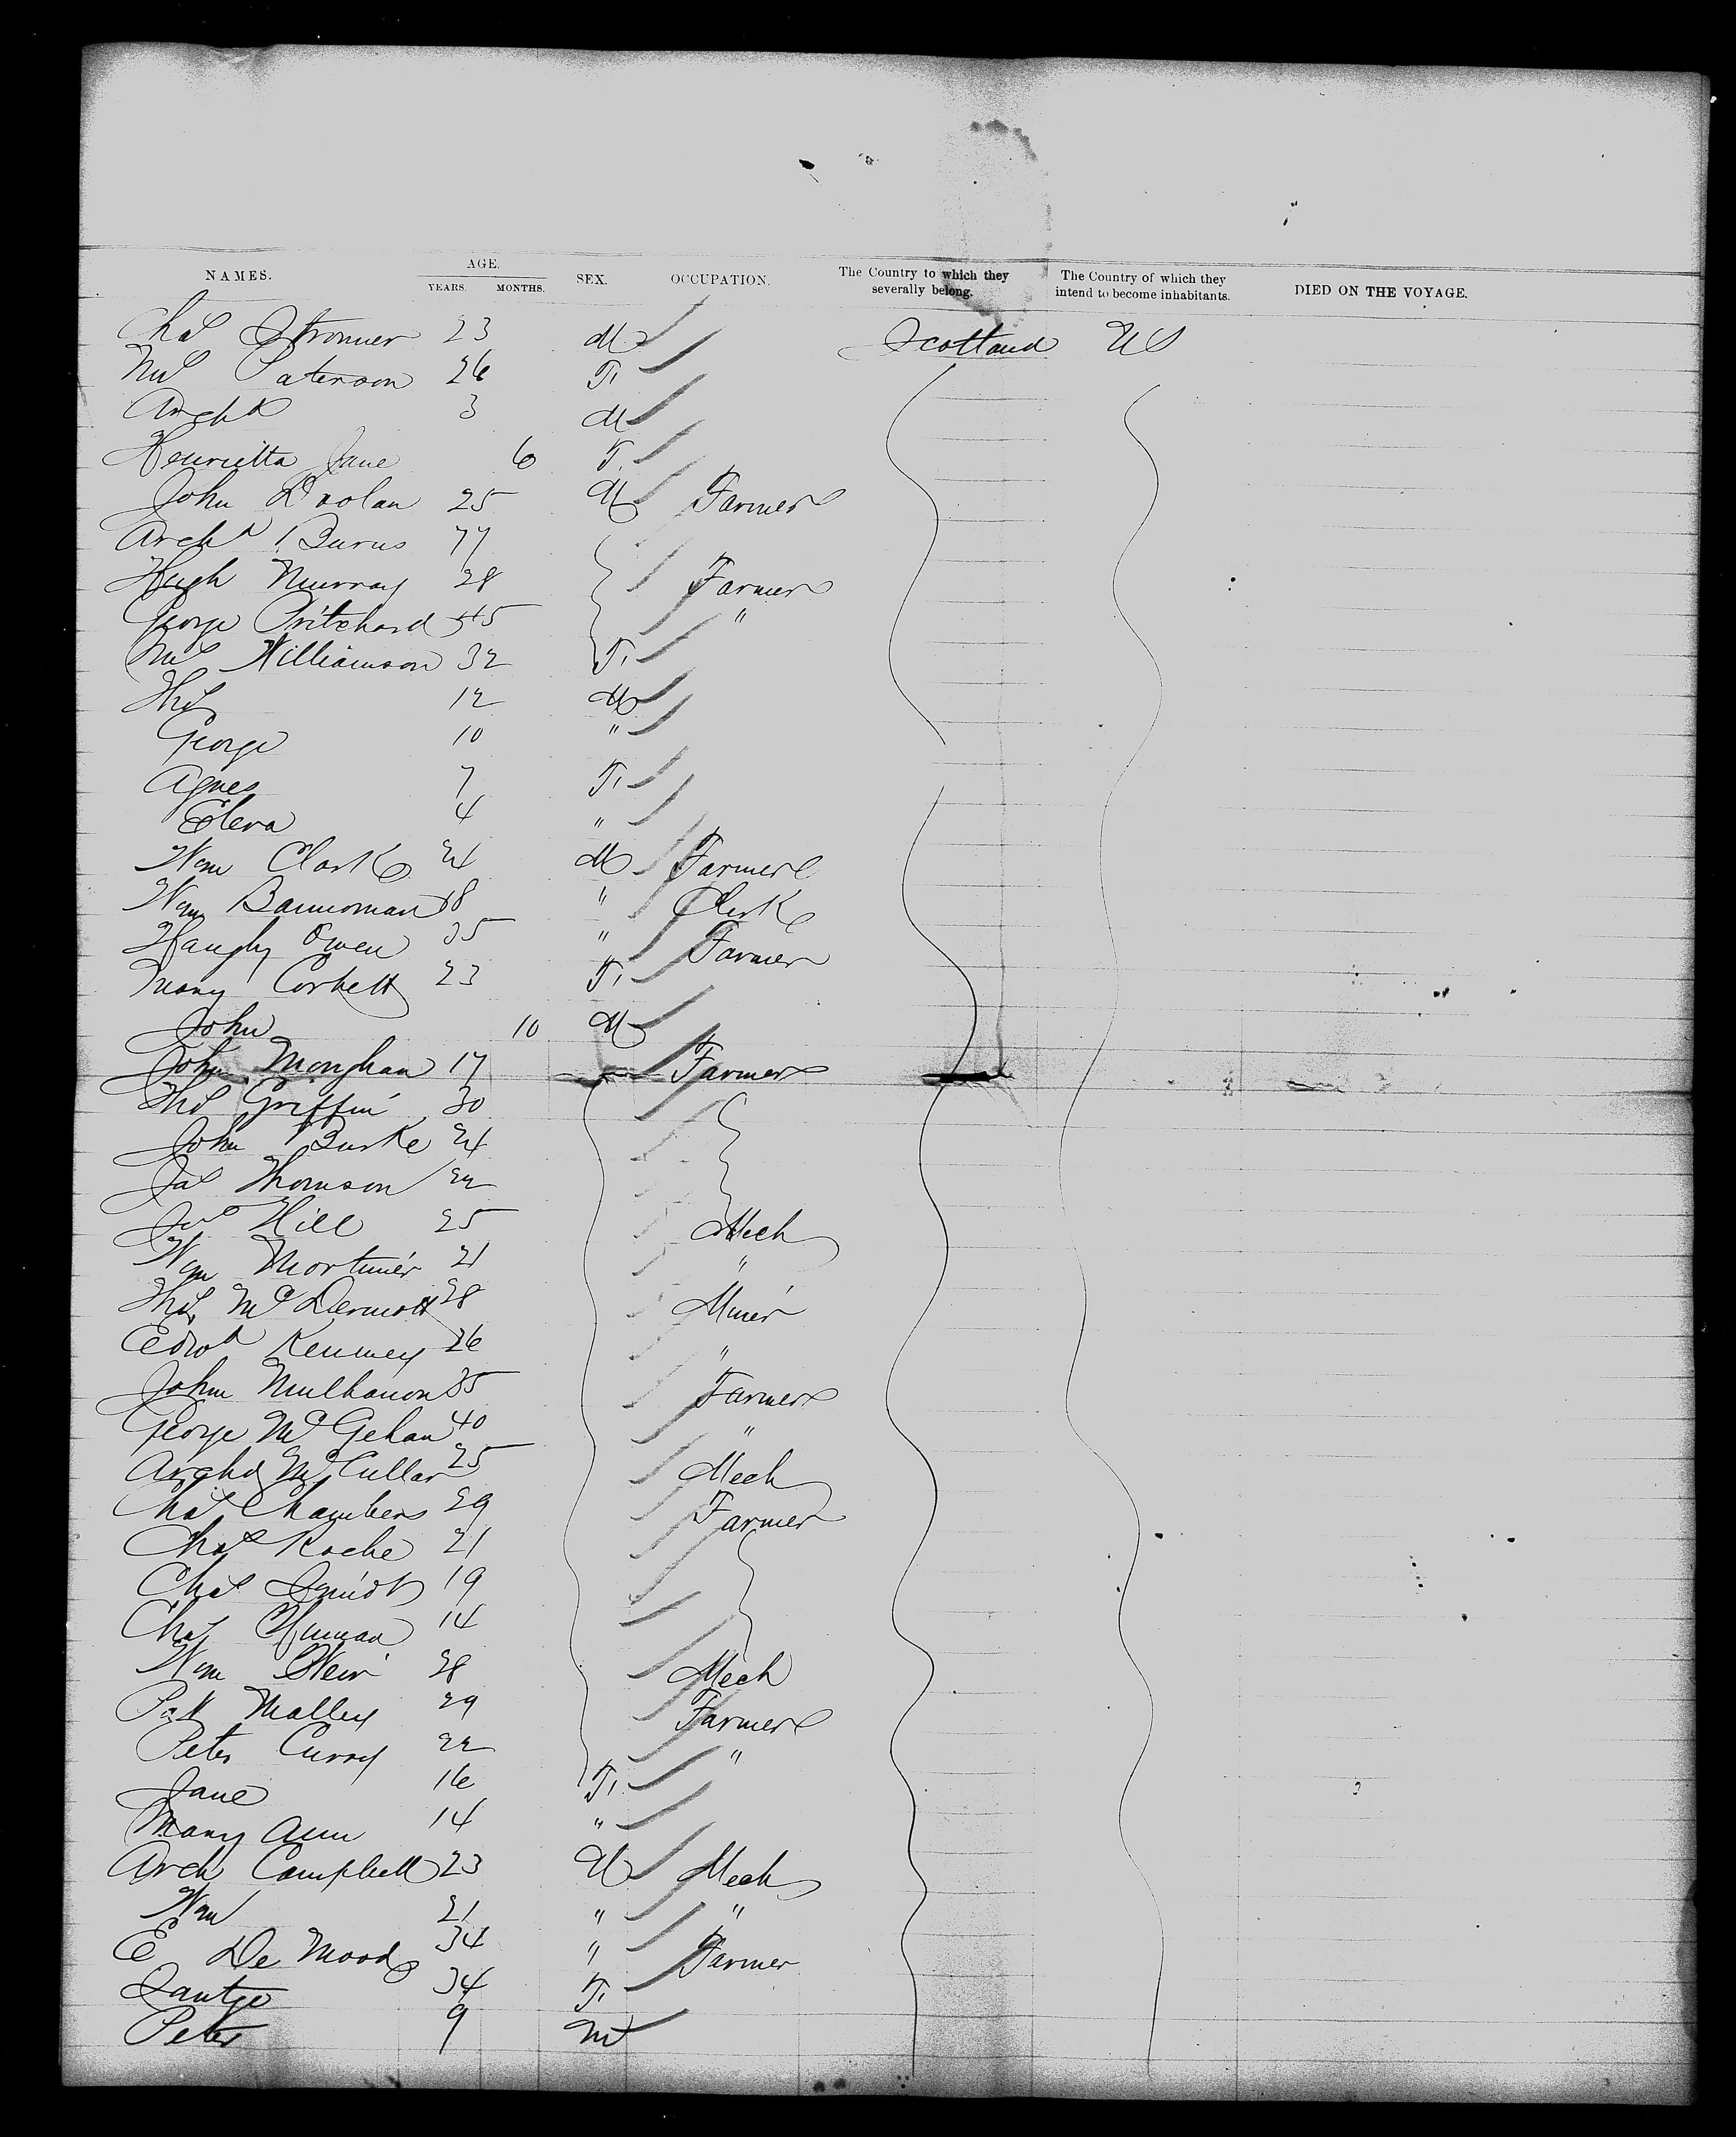 NAMES. AGE. YEARS. MONTHS. SEX. OCCUPATION. The Country to which they severally belong. The Country of which they intend to become inhabitants. DIED ON THE VOYAGE.
Chas Stronner 23 M Scotland US
Mrs Paterson 26 F
Archd 3 M
Henrietta Jane 6 F.
John Doolan 25 M Farmer
Archd Burns 77
Hugh Murray 28 Farmer
George Pritchard 45 "
Mrs Williamson 32 F
Ths 12 M
George 10 "
Agnes 7 F
4 "
Wm Clark 24 M Farmer
Wm Bannerman 18 " Clerk
Owen 35 " Farmer
Mary Corbett 23 F
John 10 M
John Monghan 17 Farmer
Ths Griffin 30
John Burke 24
Jas Thomson 22
Jno Hill 25 Mech
Wm Mortimer 21 "
Ths McDermott 28 Miner
Edwd Kenney 26 "
John Mulhanon 35 Farmer
George McGehan 40 "
Archd McCullar 25 Mech
Chas Chambers 29 Farmer
Chas Roche 21
Chas Smidt 19
Chas 14
Wm Weir 28 Mech
Pat Malley 29 Farmer
Peter Curry 22 "
Jane 16 F
Mary Ann 14 "
Arch Campbell 23 M Mech
Wm 21 " "
E De Mood 34 " Farmer
34 F
Peter 9 M